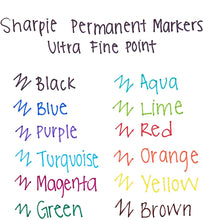 Sharpie Permanent Markers
Ultra Fine Point
Black
Aqua
Blue
Lime
Purple
Red
Turquoise
Orange
Magenta
Yellow
Green
Brown